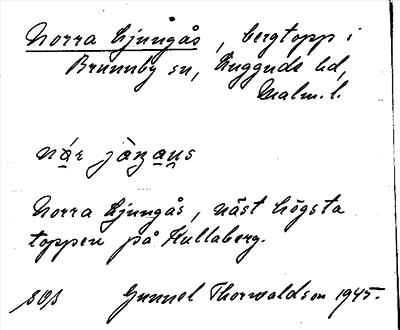 Norra Ljungås, bergtopp i
Brunnby sn, Luggude hd,
Malm. l.
Norra Ljungås, näst högsta
toppen på Kullaberg.
Gunnel Thorwaldson 1945.